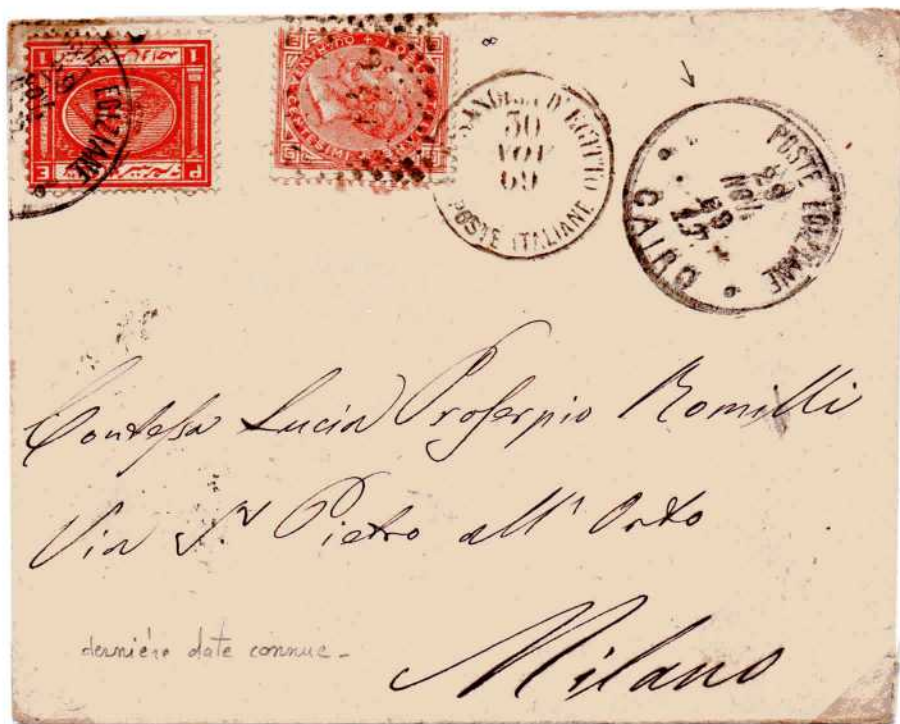 POSTE EGIZIANE
ALESSANDRIA D'EGITTO
30
NOV
69
POSTE ITALIANE
POSTE EGIZIANE
29
NOV
69
CAIRO
Contessa Lucia Proserpio Romilli
Via S.n Pietro all' Orto
Milano
dernière date connue -